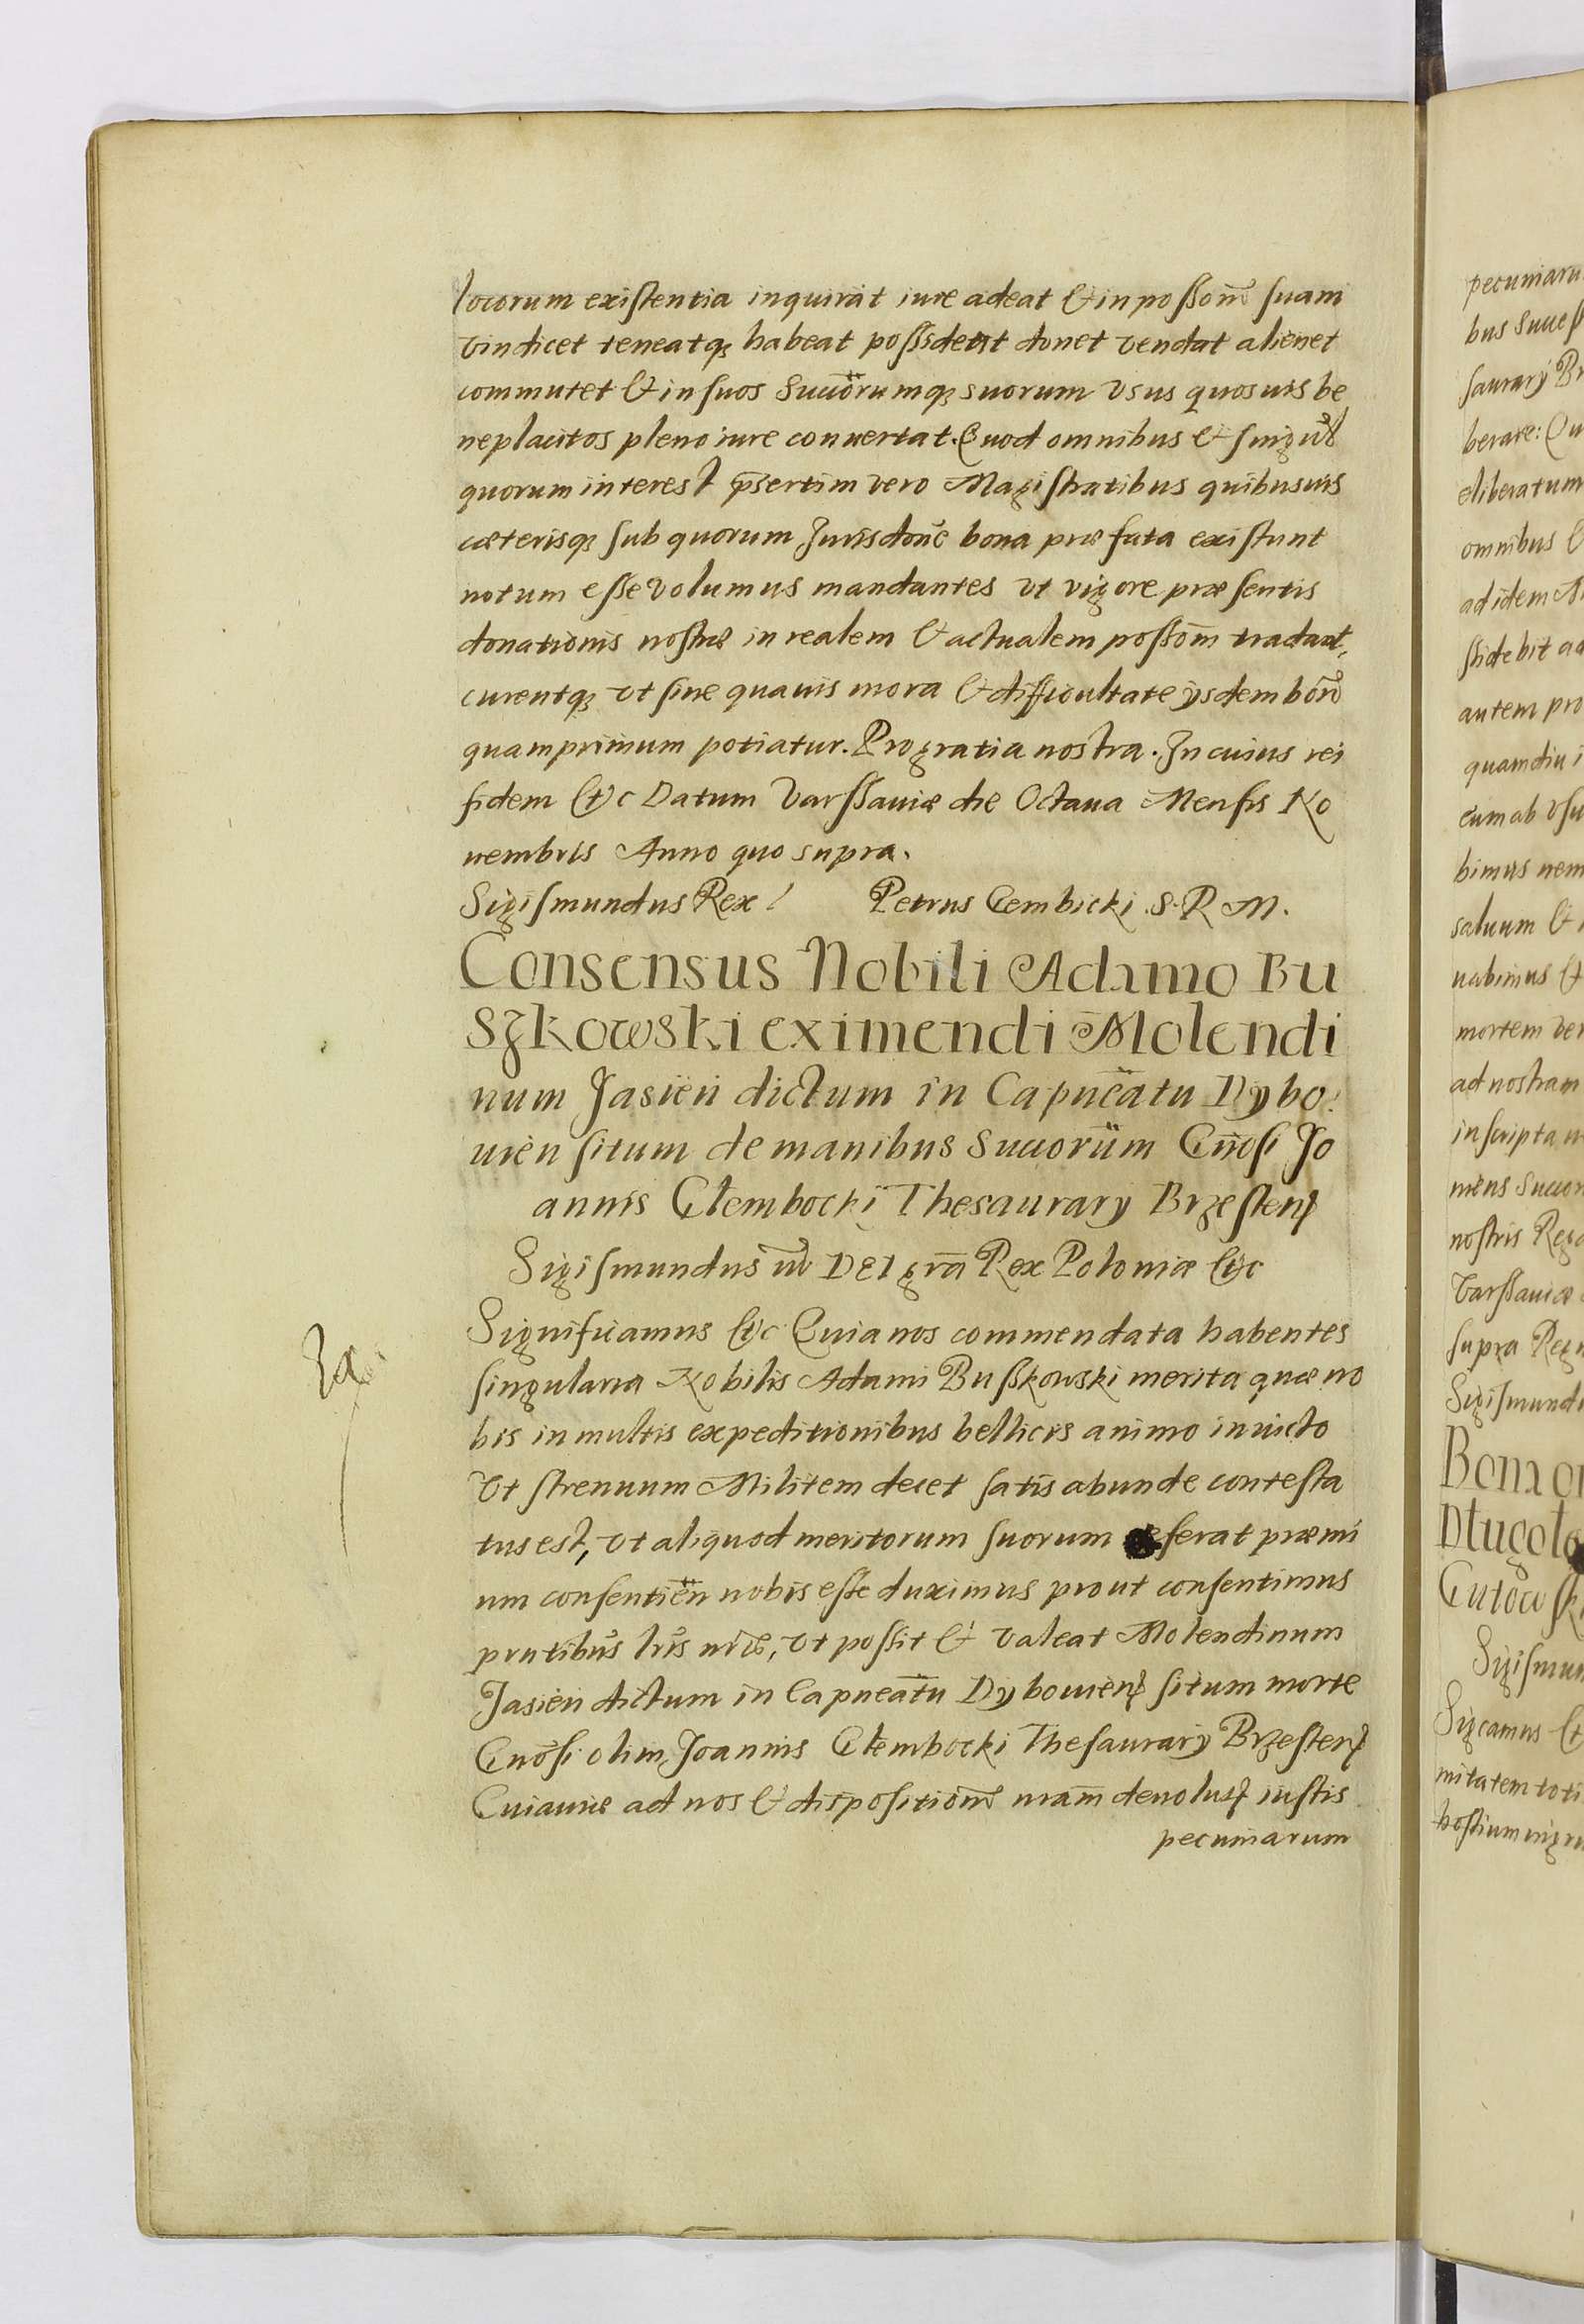 locorum existentia inquirat iure adeat & in possom̄ suam
vindicet teneatq; habeat possideat donet vendat alienet
commutet & in suos Succōrumq; suorum vsus quosuis be
neplacitos pleno iure conuertat. Quod omnibus & singul
quorum interest p̄sertim vero Magistratibus quibusuis
cæterisq; sub quorum Jurisdōne bona præfata existunt
notum esse volumus mandantes vt vigore præsentis
donationis nostræ in realem & actualem possōm tradant,
curentq; vt sine quauis mora & difficultate ijsdem bōn
quamprimum potiatur. Pro gratia nostra. In cuius rei
fidem &c Datum Varssauiæ die Octaua Mensis No
uembris Anno quo supra.
Sigismundus Rex Petrus Gembicki S. R. M.
Consensus Nobili Adamo Bu
szkowski eximendi Molendi
num Jasień dictum in Capnēatu Dybo
uien situm de manibus Succorūm Gn̄osi Jo
annis Głembocki Thesaurary Brzesten
Sigismundus DEI grā Rex Poloniæ &c
Significamus &c Quia nos commendata habentes
singularia Nobilis Adami Busskowski merita quæ no
bis in multis expeditionibus bellicis animo inuicto
Vt strenuum Militem decet satis abunde contesta
tus est, vt aliquod meritorum suorum referat præmi
um consentien nobis esse duximus prout consentimus
pn̄tibus lr̄is nr̄is, vt possit & valeat Molendinum
Jasień dictum in Capneātu Dybouien situm morte
Gnōsi olim Joannis Głembocki Thesaurary Brzesten
Cuiauiæ ad nos & dispositionē nrām deuolut iustis
pecuniarum
pecuniaru
bus Succes
saurary Br
berare: Qu
eliberatum
omnibus &
ad idem M
ssidebit ad
autem pro
quamdiu i
eum ab vsu
bimus nem
saluum &
uabimus &
mortem ver
ad nostram
inscripta
mens Succor
nostris Rega
Varssauiæ
supra Regn
Sigismund
Bona
Sigismun
Sigcamus &
nitatem toti
hostium ingru